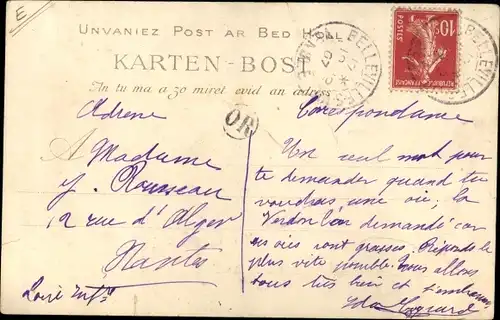 E
Unvaniez Post ar Bed Holl
KARTEN-BOST
An tu ma a zo miret evid an adress
BELLEVILLE
10c
POSTES
REPUBLIQUE FRANÇAISE
BELLEVILLE
OR
Adresse
Correspondance
A Madame
J. Rousseau
12 rue d'Alger
Nantes
Loire Infre
Un seul mot pour
te demander quand tu
voudras une oie, la
Verdon demandé car
ses oies sont grasses. Réponds le
plus vite possible. Nous allons
tous très bien et t'embrassons
Ida